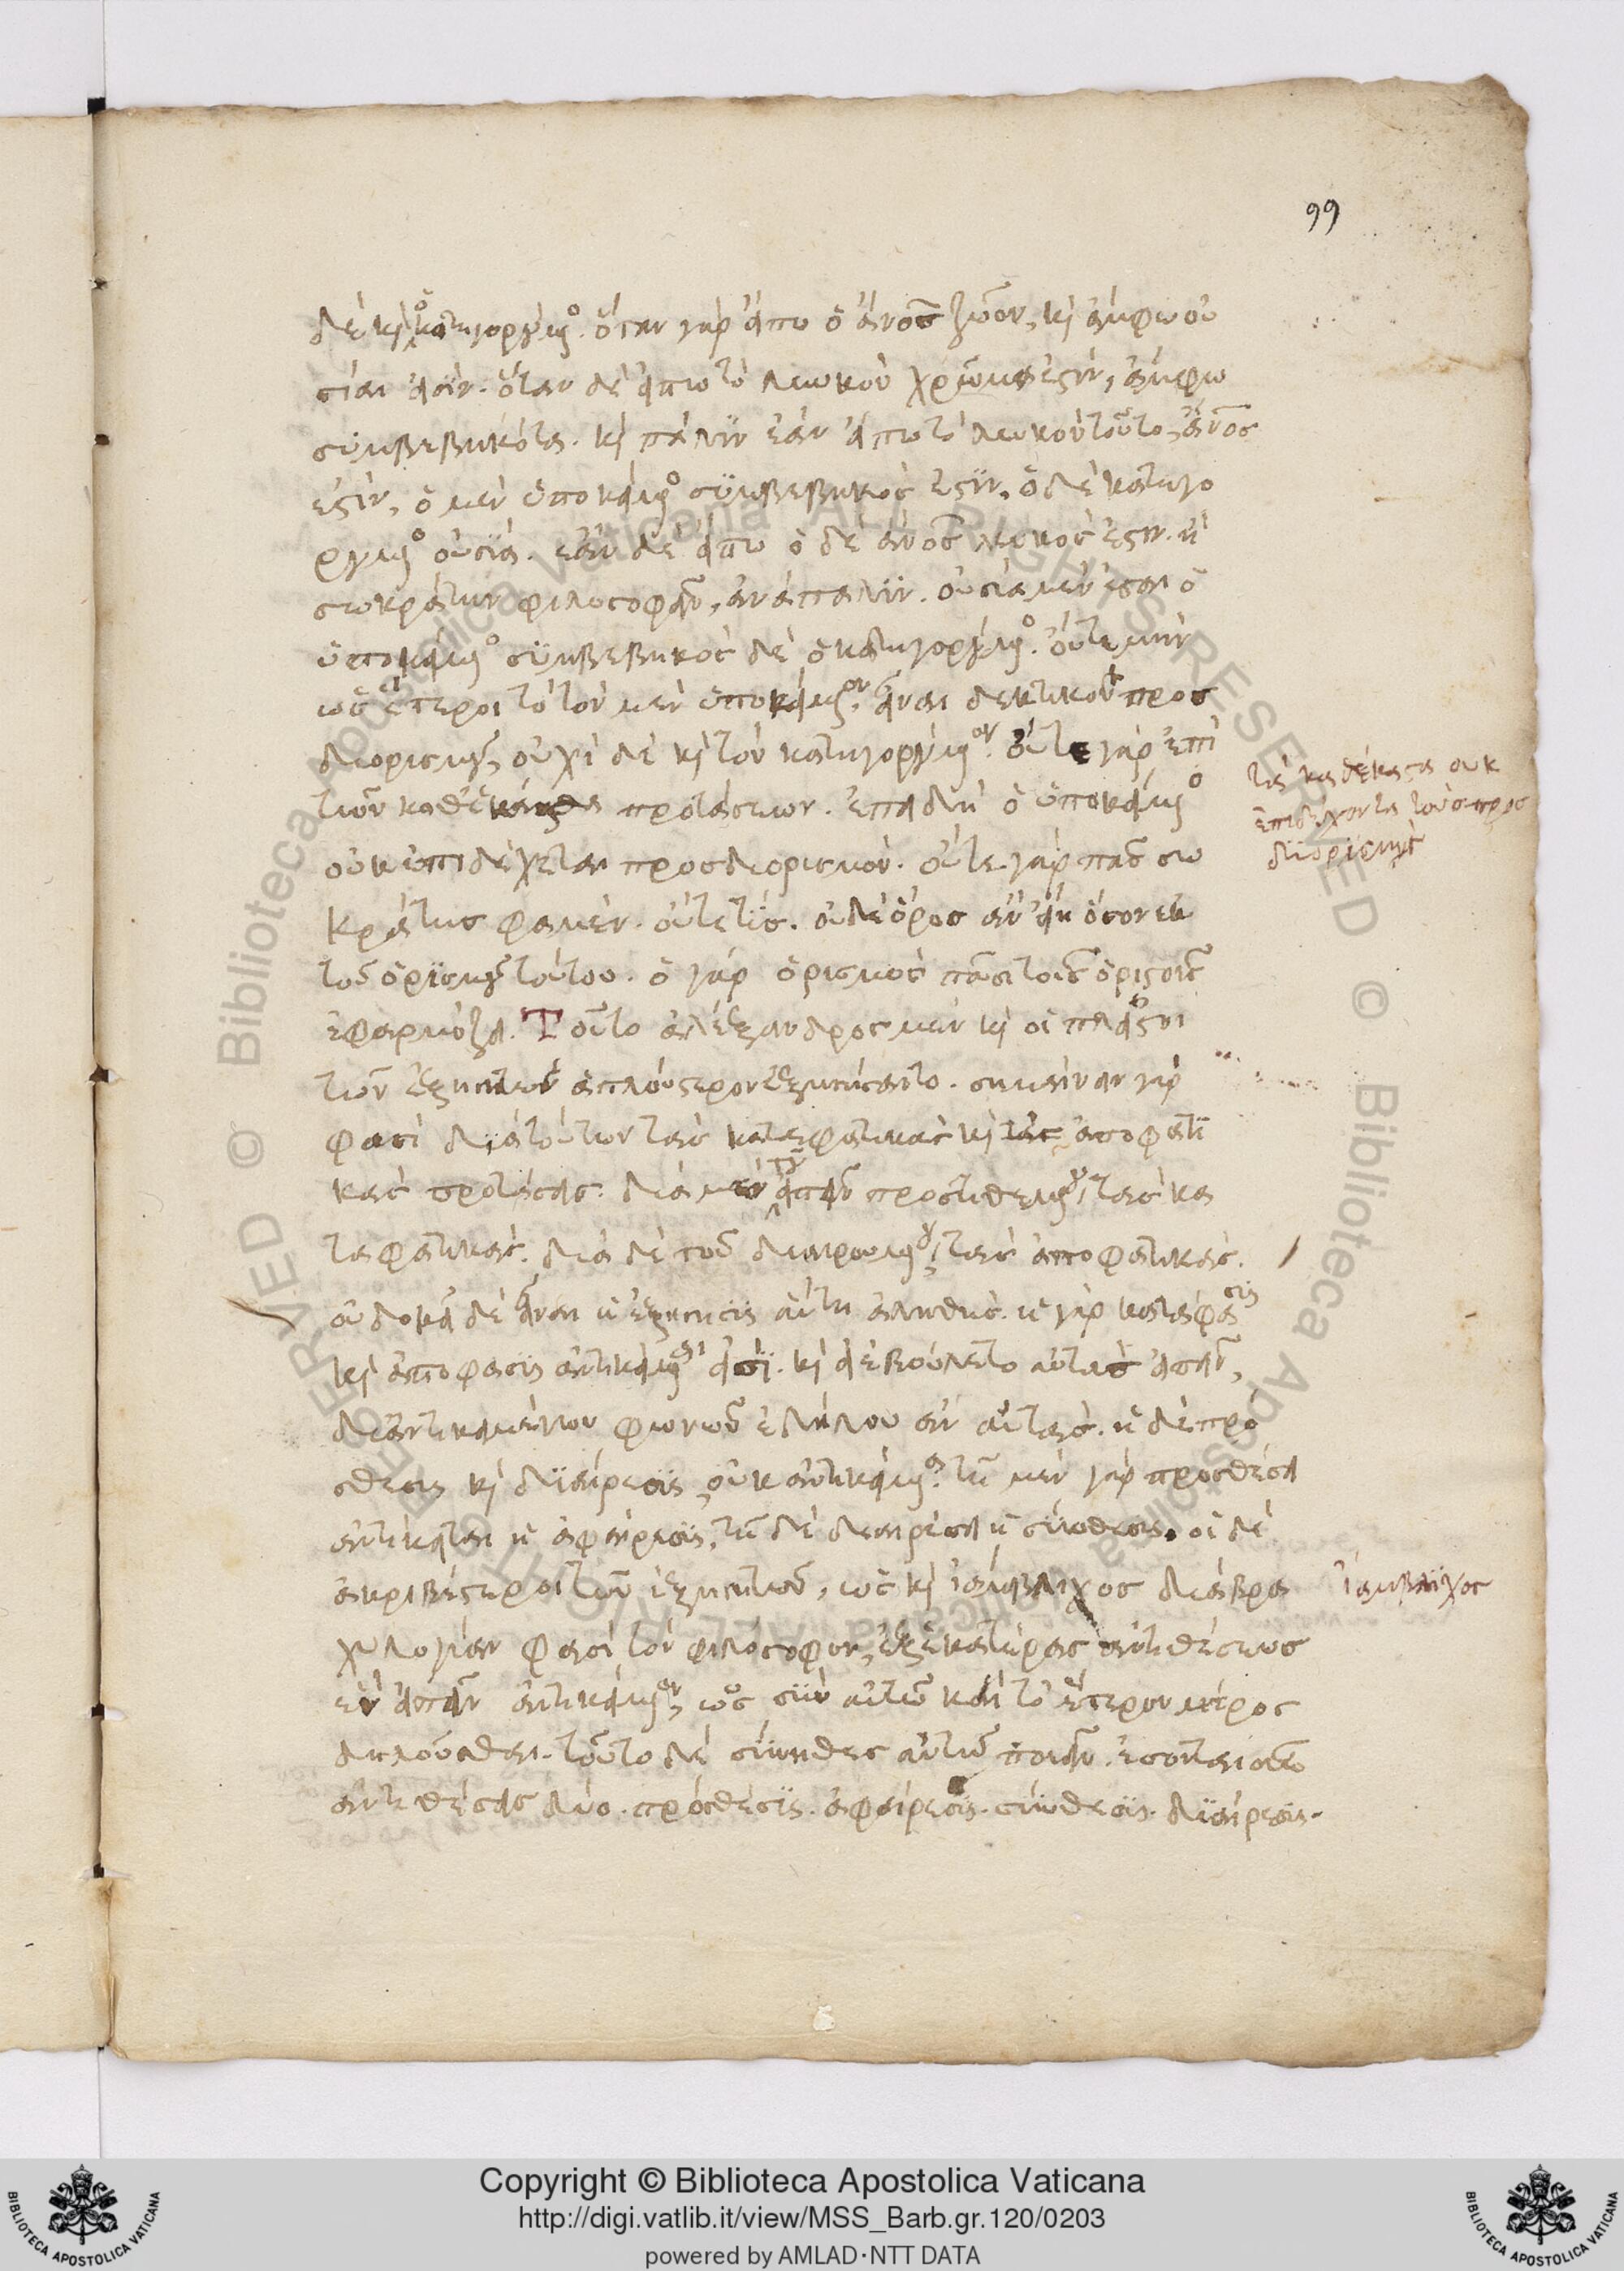 99
δὲ καὶ ὁ κατηγορούμενος. ὅταν γὰρ εἴπω ὁ ἄνος ζῶον, καὶ ἄμφω οὐ
σίαι εἰσίν. ὅταν δὲ εἴπω τὸ λευκὸν χρῶμα ἐστίν, ἄμφω
συμβεβηκότα. καὶ πάλιν ἐὰν εἴπω τὸ λευκὸν τοῦτο, ἄνος
ἐστίν, ὁ μὲν ὑποκείμενος συμβεβηκός ἐστιν, ὁ δὲ κατηγο
ρούμενος οὐσία. ἐὰν δὲ εἴπω ὁ δὲ ἄνος λευκός ἐστιν. ἢ
σωκράτην φιλοσοφεῖν, ἀνάπαλιν. οὐσία μὲν ἔσται ὁ
ὑποκείμενος συμβεβηκὸς δὲ ὁ κατηγορούμενος. οὔτε μὴν
ὡς ἕτεροι τὸ τὸν μὲν ὑποκείμενον, εἶναι δεκτικὸν προσ
διορισμοῦ, οὐχὶ δὲ καὶ τὸν κατηγορούμενον. οὔτε γὰρ ἐπὶ
τῶν καθέκαστα προτάσεων. ἐπειδὴ ὁ ὑποκείμενος
οὐκ ἐπιδέχεται προσδιορισμόν. οὔτε γὰρ πᾶς σω
κράτης φαμέν. οὔτε τίς. οὐδὲ ὅρος ἂν εἴη ὅσον ἐκ
τοῦ ὁρισμοῦ τούτου. ὁ γὰρ ὁρισμὸς πᾶσι τοῖς ὁριστοῖς
ἐφαρμόζει. Τοῦτο ἀλέξανδρος μὲν καὶ οἱ πλεῖστοι
τῶν ἐξηγητῶν ἁπλούστερον ἐξηγήσαντο. σημαίνειν γὰρ
φασὶ διὰ τούτων τὰς καταφατικὰς καὶ τὰς ἀποφατι
κὰς προτάσεις. διὰ μὲν τοῦ εἰπεῖν προστιθεμένου, τὰς κα
ταφατικάς. διὰ δὲ τοῦ διαιρουμένου, τὰς ἀποφατικάς.
οὐ δοκεῖ δὲ εἶναι ἡ ἐξήγησις αὕτη ἀληθής. ἡ γὰρ κατάφασις
καὶ ἀπόφασις ἀντικείμεναι εἰσί. καὶ εἰ ἐβούλετο αὐτὰς εἰπεῖν,
δι' ἀντικειμένων φωνῶν ἐδήλου ἂν αὐτάς. ἡ δὲ πρό
σθεσις καὶ διαίρεσις, οὐκ ἀντικείμεναι. τῆ μὲν γὰρ προσθέσει
ἀντίκειται ἡ ἀφαίρεσις, τῆ δὲ διαιρέσει ἡ σύνθεσις. οἱ δὲ
ἀκριβέστεροι τῶν ἐξηγητῶν, ὡς καὶ ἰάμβλιχος διὰ βρα
χυλογίαν φασὶ τὸν φιλόσοφον, ἐξ ἑκατέρας ἀντιθέσεως
ἓν εἰπεῖν ἀντικείμενον, ὡς σὺν αὐτῶ καὶ τὸ ἕτερον μέρος
δηλοῦσθαι. τοῦτο δὲ σύνηθες αὐτῶ ποιεῖν. ἔσονται οὖν
ἀντιθέσεις δύο. πρόσθεσις. ἀφαίρεσις. σύνθεσις. διαίρεσις.
τὰ καθέκαστα οὐκ
ἐπιδέχονται τοὺς προσ
διορισμούς
ἰάμβλιχος
Copyright © Biblioteca Apostolica Vaticana
http://digi.vatlib.it/view/MSS_Barb.gr.120/0203
powered by AMLAD·NTT DATA